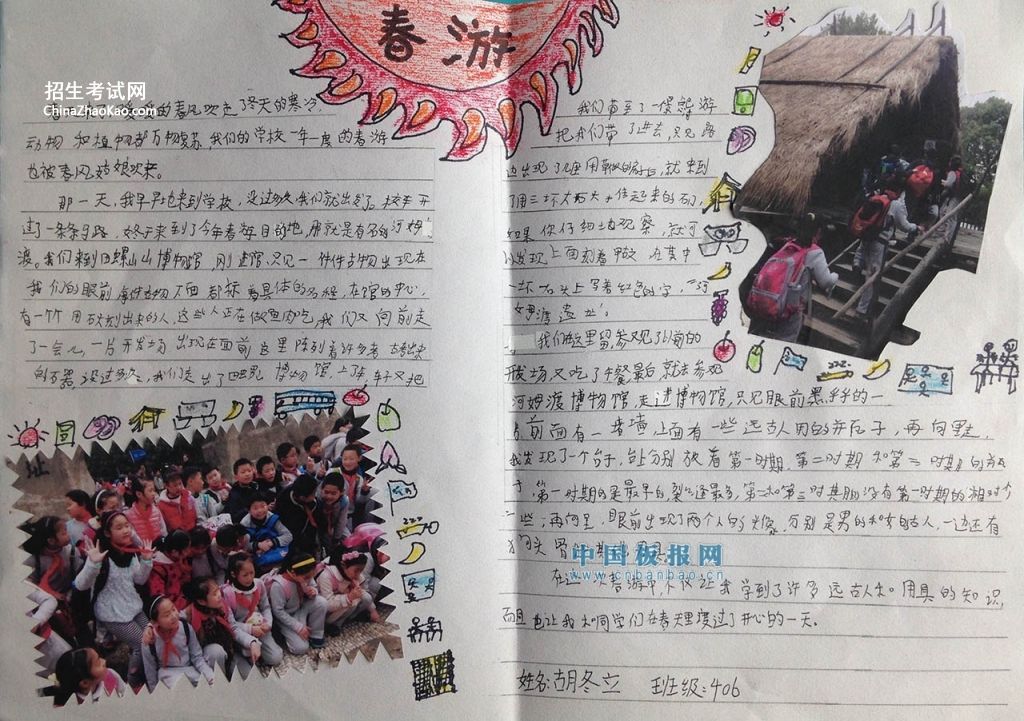 春游
招生考试网
ChinaZhaoKao.com
的春风吹走了冬天的寒冷,
动物和植物都万物复苏,我们的学校一年一度的春游
也被春风姑娘吹来。
那一天,我早早地来到学校,没过多久我们就出发了。校车开
过了一条条马路,终于来到了今年春游目的地,那就是有名的河姆
渡。我们来到田螺山博物馆,刚进馆,只见一件件古物出现在
我们的眼前,每件古物下面都标着具体的名称,在馆的中心,
有一个个用石头刻出来的人,这些人正在做鱼肉吃,我们又向前走
了一会儿,一片开发场出现在面前,这里陈列着许多考古挖出来
的石器,没过多久,我们走出了田螺山博物馆,上车,车又把
我们带到了一棵
把我们带了进去,只见路
边出现了几座用草做的房子,就来到
了用三环大石头
如果你仔细地观察,就可
以发现,上面刻着
在其中
一环石头上写着红色的字,“河
姆渡遗址”
我们在这里留影参观了以前的
场又吃了午餐最后,就去参观
河姆渡博物馆,走进博物馆,只见眼前黑乎乎的一
前面有一堵墙,上面有一些远古人用的
再向里走,
我发现了一个台子,台上分别放着第一时期,第二时期和第三时期的
第一时期的是最早的,裂缝最多,第二和第三时期
没有第一时期的
一些,再向里,眼前出现了两个人的头像,分别是男的和女的古人,一边还有
中国板报网
www.cnbanbao.cn
在这一次春游中,不仅让我学到了许多远古人和用具的知识,
而且也让我和同学们在春天里度过了开心的一天。
姓名:胡冬立 班级:406